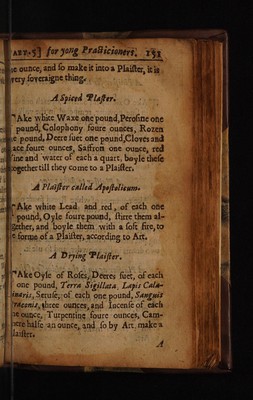 ART-5] for yong Practicioners. 151
ne ounce, and so make it into a Plaister, it is
very soveraigne thing.
A Spiced Plaster.
Ake white Waxe one pound, Perosine one
pound, Colophony foure ounces, Rozen
e pound, Deere suet one pound, Cloves and
ace foure ounces, Saffron one ounce, red
ine and water of each a quart, boyle these
together till they come to a Plaister.
A Plaister called Apostolicum.
Ake white Lead and red, of each one
pound, Oyle foure pound, stirre them al-
gether, and boyle them with a soft fire, to
e forme of a Plaister, according to Art.
A Drying Plaister.
Ake Oyle of Roses, Deeres suet, of each
one pound, Terra Sigillata, Lapis Cala-
inaris, Seruse, of each one pound, Sanguis
raconis, three ounces, and Incense of each
ne ounce, Turpentine foure ounces, Cam-
hire halfe an ounce, and so by Art make a
laister.
A